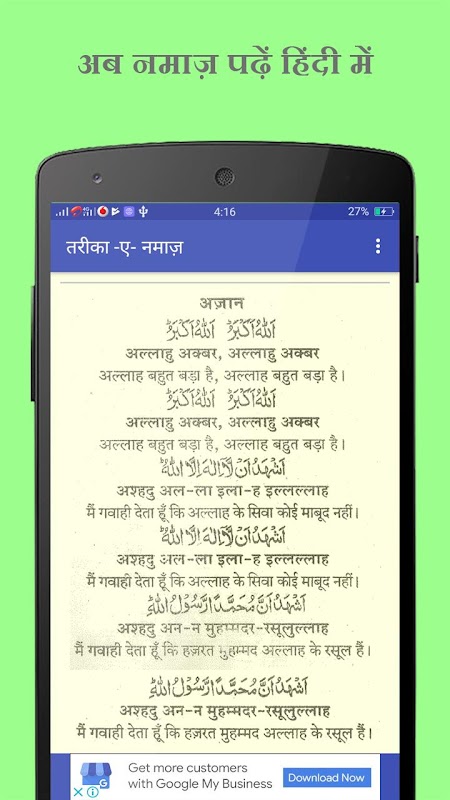 अब नमाज़ पढ़ें हिंदी में
4:16
27%
तरीका -ए- नमाज़
अज़ान
اَللّٰهُ اَكْبَرُ اَللّٰهُ اَكْبَرُ
अल्लाहु अक्बर, अल्लाहु अक्बर
अल्लाह बहुत बड़ा है, अल्लाह बहुत बड़ा है।
اَللّٰهُ اَكْبَرُ اَللّٰهُ اَكْبَرُ
अल्लाहु अक्बर, अल्लाहु अक्बर
अल्लाह बहुत बड़ा है, अल्लाह बहुत बड़ा है।
اَشْهَدُ اَنْ لَّا اِلٰهَ اِلَّا اللّٰهُ
अश्हदु अल-ला इला-ह इल्लल्लाह
मैं गवाही देता हूँ कि अल्लाह के सिवा कोई माबूद नहीं।
اَشْهَدُ اَنْ لَّا اِلٰهَ اِلَّا اللّٰهُ
अश्हदु अल-ला इला-ह इल्लल्लाह
मैं गवाही देता हूँ कि अल्लाह के सिवा कोई माबूद नहीं।
اَشْهَدُ اَنَّ مُحَمَّدًا رَّسُوْلُ اللّٰهِ
अश्हदु अन-न मुहम्मदर-रसूलुल्लाह
मैं गवाही देता हूँ कि हज़रत मुहम्मद अल्लाह के रसूल हैं।
اَشْهَدُ اَنَّ مُحَمَّدًا رَّسُوْلُ اللّٰهِ
अश्हदु अन-न मुहम्मदर-रसूलुल्लाह
मैं गवाही देता हूँ कि हज़रत मुहम्मद अल्लाह के रसूल हैं।
Get more customers
with Google My Business
Download Now